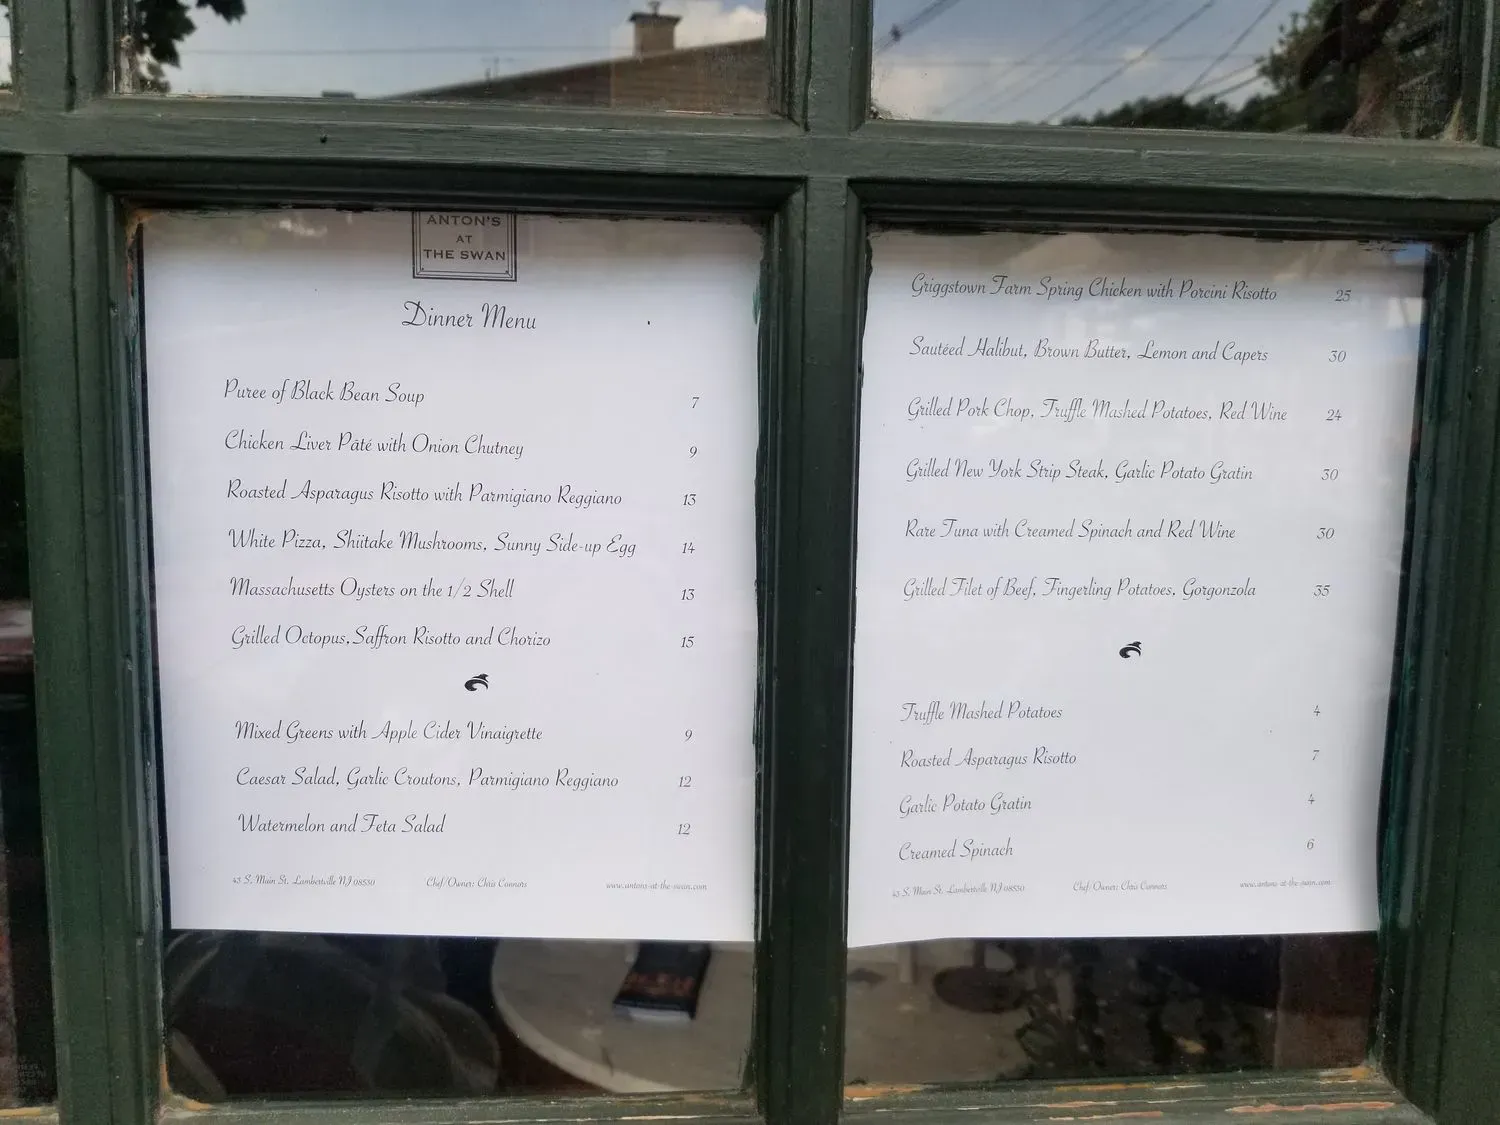 ANTON'S
AT
THE SWAN
Dinner Menu
Puree of Black Bean Soup 7
Chicken Liver Pâté with Onion Chutney 9
Roasted Asparagus Risotto with Parmigiano Reggiano 13
White Pizza, Shiitake Mushrooms, Sunny Side-up Egg 14
Massachusetts Oysters on the 1/2 Shell 13
Grilled Octopus, Saffron Risotto and Chorizo 15
Mixed Greens with Apple Cider Vinaigrette 9
Caesar Salad, Garlic Croutons, Parmigiano Reggiano 12
Watermelon and Feta Salad 12
43 S. Main St. Lambertville NJ 08530 Chef/Owner: Chris Connors www.antons-at-the-swan.com
Griggstown Farm Spring Chicken with Porcini Risotto 25
Sautéed Halibut, Brown Butter, Lemon and Capers 30
Grilled Pork Chop, Truffle Mashed Potatoes, Red Wine 24
Grilled New York Strip Steak, Garlic Potato Gratin 30
Rare Tuna with Creamed Spinach and Red Wine 30
Grilled Filet of Beef, Fingerling Potatoes, Gorgonzola 35
Truffle Mashed Potatoes 4
Roasted Asparagus Risotto 7
Garlic Potato Gratin 4
Creamed Spinach 6
43 S. Main St. Lambertville NJ 08530 Chef/Owner: Chris Connors www.antons-at-the-swan.com